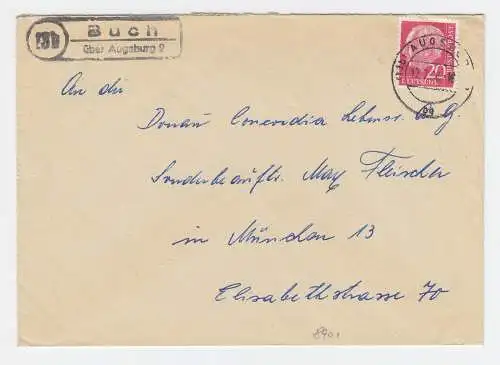 13b
Buch
über Augsburg 2
(13b) AUGSBURG
20
An die
Donau Concordia Lebensv. A. G.
Sonderbeauftr. Max Fleischer
in München 13
Elisabethstrasse 70